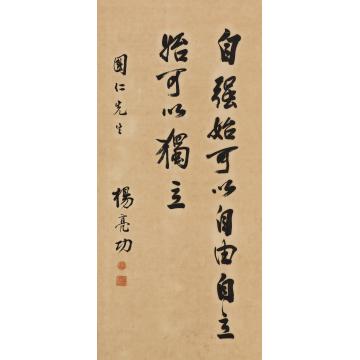 自强始可以自由自立
始可以獨立
國仁先生
楊亮功